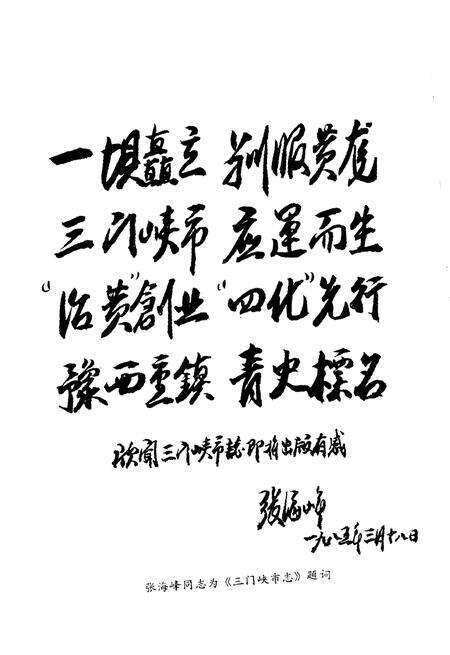 一埧矗立 训服黄龙
三门峡市 应運而生
“治黄”創业 “四化”先行
豫西重鎮 青史標名
欣闻三门峡市誌即将出版有感
张海峰
一九八五年三月十八日
张海峰同志为《三门峡市志》题词